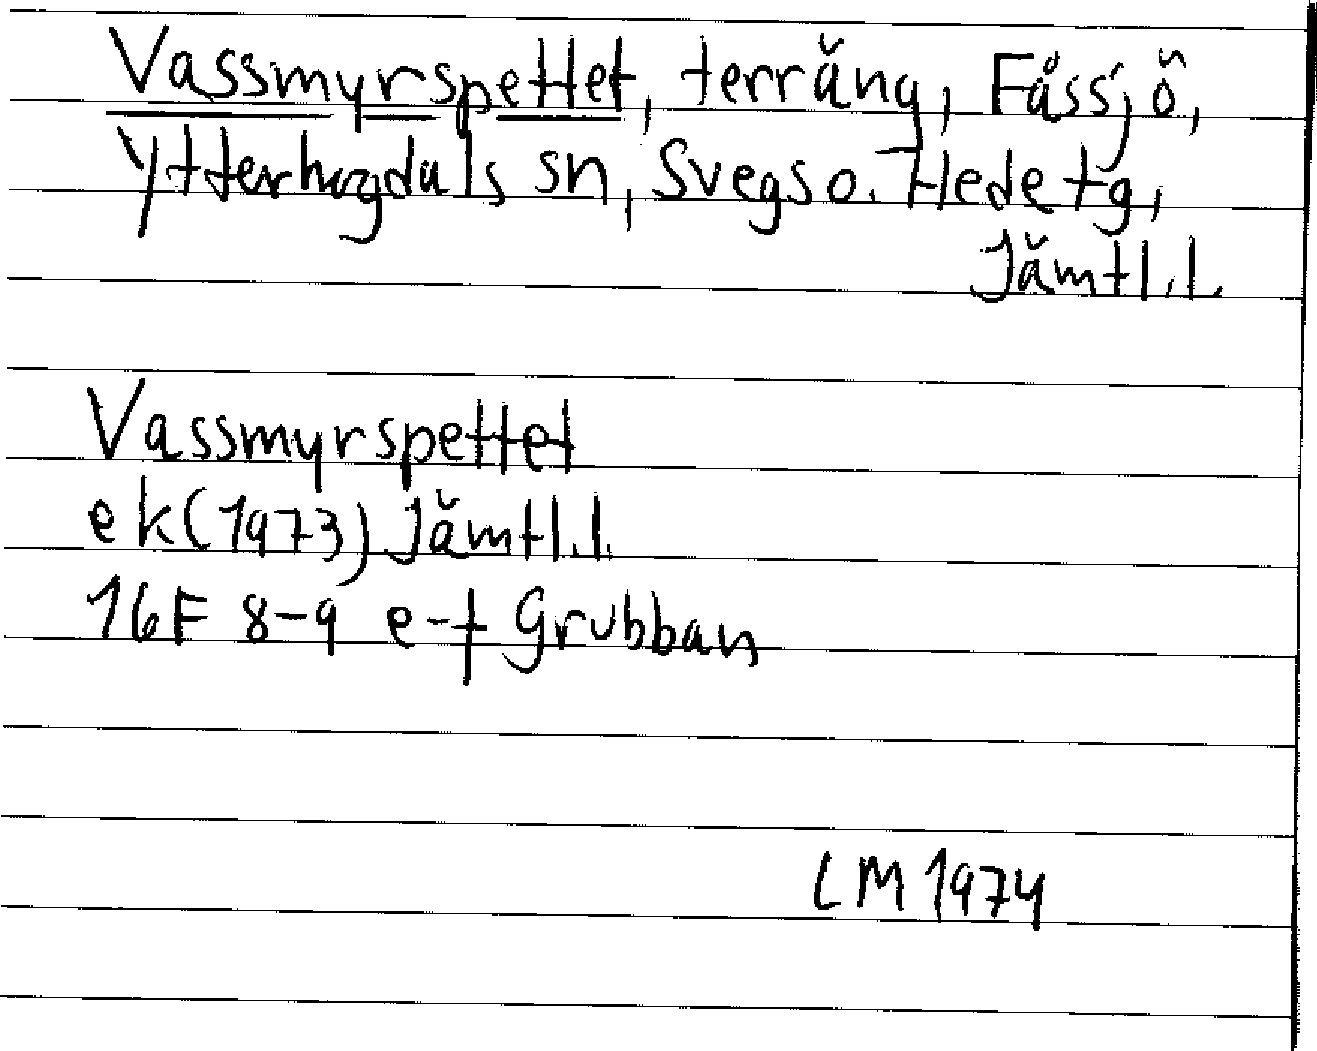 Vassmyrspettet, terräng, Fåssjö,
Ytterhogdals sn, Svegs o. Hede tg,
Jämtl. l.
Vassmyrspettet
ek (1973) Jämtl. l.
16F 8-9 e-f Grubban
LM 1974